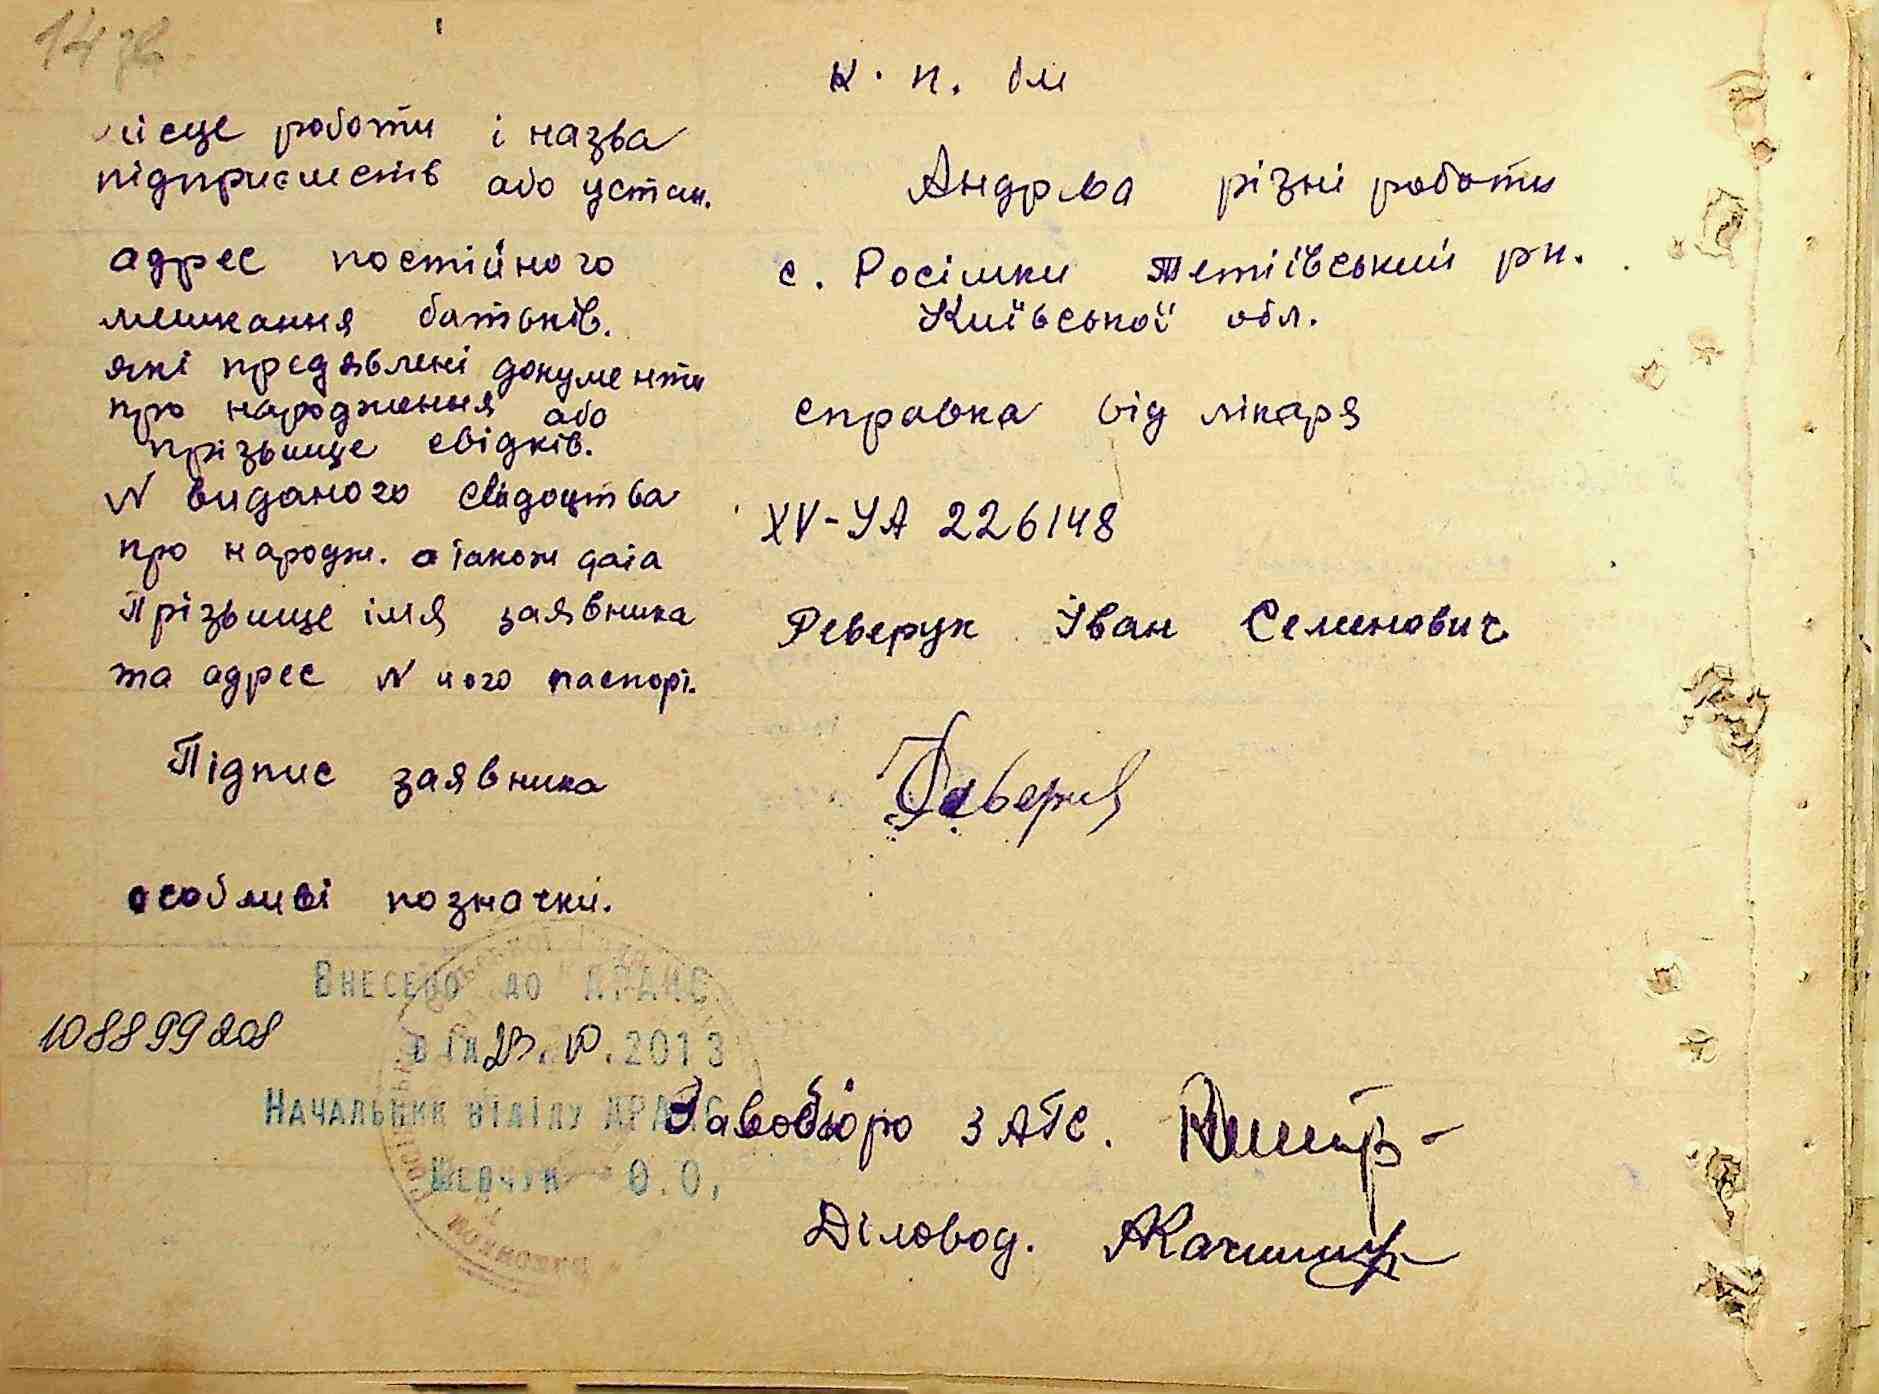 14 зв
к. п. бм
місце роботи і назва
підприємств або устан.
Андръа різні роботи
адрес постійного
мешкання батьків.
с. Росішки Тетіївський рн.
Київської обл.
які предявлені документи
про народження або
прізвище свідків.
справка від лікаря
N виданого свідоцтва
про народж. а також дата
XV-УА 226148
Прізвище імя заявника
та адрес N його паспорт.
Реверук Іван Семенович
Підпис заявника
особливі позначки.
Внесено до АРАЦС
108899208
від 23.10.2013
Начальник відділу ДРАЦС
Шевчук О.О.
Завобюро ЗАГС.
Діловод.